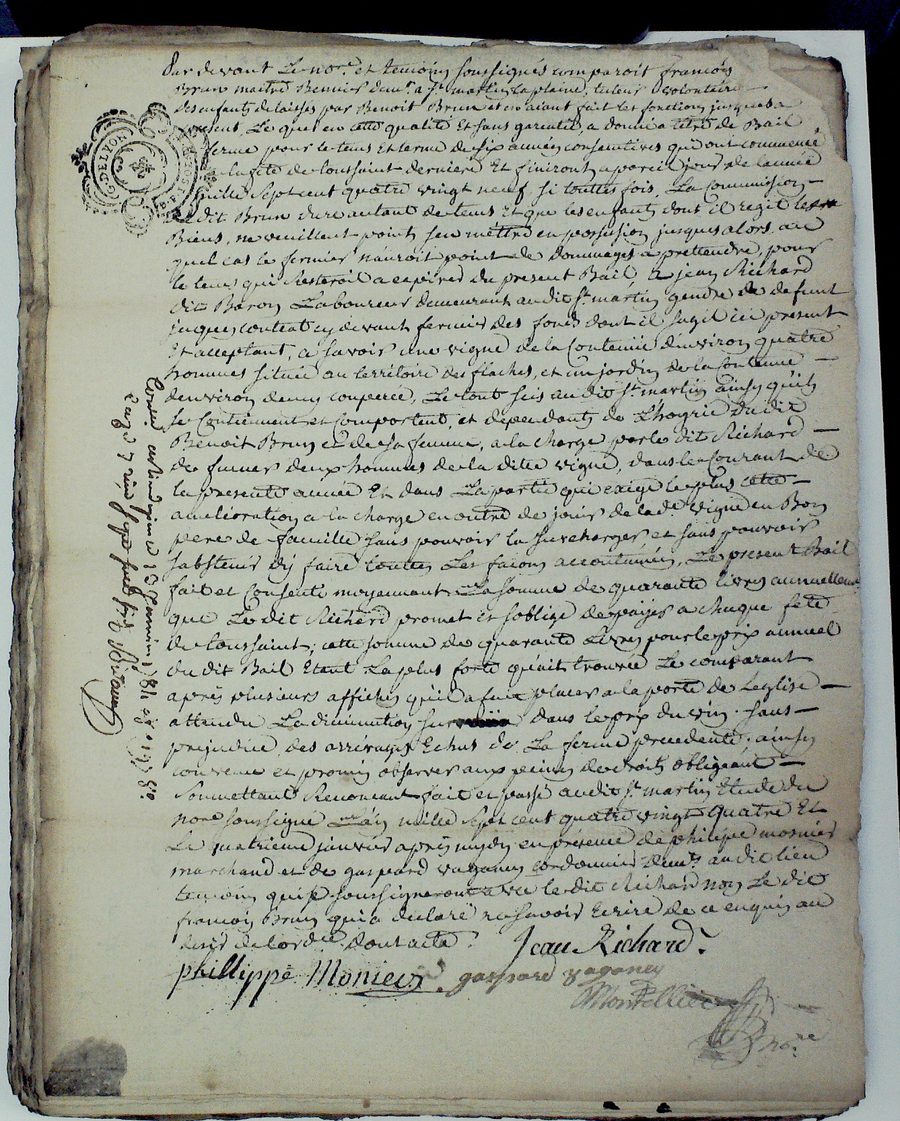 Par devant Le nore. et temoins soussignés comparoit francois
Brun maitre demt. a st. martin la plaine, tuteur volontaire
des enfants delaissés par Benoit Brun et en aiant fait les fonctions jusques a
present, Le quel en cette qualité Et sans garentie, a donné a titre de Bail
ferme pour le tems Et terme de six années consecutives qui ont commencé
a la fete de toussaint derniere Et finiront a pareil jour de l'année
mille sept cent quatre vingt neuf si toutes fois, La Commission
dudit Brun dure autant de tems Et que les enfants dont il regit les
Biens, ne veuillent point s'en mettre en possession jusques alors, au
quel cas le fermier n'auroit point de dommages a prettendre, pour
le tems qui resteroit a expirer du present Bail, a jean Richard
dit Baron Laboureur demeurant audit st. martin gendre de defunt
jacques cy devant fermier des fonds dont il sagit ici present
Et acceptant, a savoir une vigne de la Contenue denviron quatre
hommes située au territoire des flaches, et un jardin de la contenue
denviron demy coupée, Le tout scis audit st. martin ainsy quils
se Contiennent et comportent, et dependants de L'hoyrie dudit
Benoit Brun et de sa femme, a la charge par le dit Richard
de fumer deux hommes de la ditte vigne, dans le Courant de
la presente année Et dans La partie qui exige le plus cette
amelioration a la charge en outre de jouir de lade. vigne en Bon
pere de famille sans pouvoir la surcharger et sans pouvoir
sabstenir d'y faire touttes Les façons accoutumées, Le present Bail
fait et Consenti moyennant La somme de quarante livres annuellemt
que Le dit Richard promet et soblige de payer a chaque fete
de toussaint; cette somme de quarante Livres pour le prix annuel
du dit Bail Etant La plus forte quait trouvée Le comparant
après plusieurs affiches quil a fait placer a la porte de Leglise
attendu La diminution dans le prix du vin. sans
prejudice des arrérages Echus de La ferme precedente, ainsy
convenu et promis observer aux peines de droits obligeant
Soumettant Renoncant fait et passé audit st. martin Etude du
nore soussigné L'an mille sept cent quatre vingt quatre Et
Le quatrieme janvier après midy en présence de philippe monier
marchand et de gaspard vaganey cordonnier demts. audit lieu
temoins qui se soussigneront avec le dit Richard non Le dit
francois Brun qui a declaré ne savoir Ecrire de ce enquis au
desir de lordce. dont acte.
Jean Richard.
phillippe Monier. gaspard vaganey
Montellier
nore
G. DE LYON